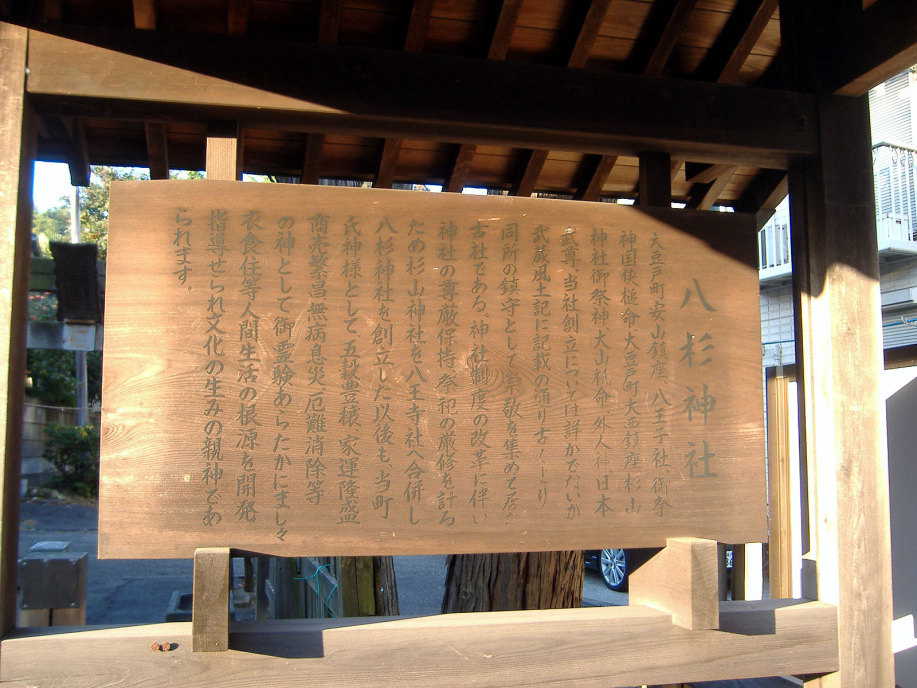 八杉神社
大豆戸町安山鎮座八王子社御祭
神国侠槌命大豆戸町大西鎮座杉山
神社御祭神大山祇命外人神日本
武尊、当社創立については詳かでないが
武蔵風土記に記載の通り古くより
同所の鎮守として崇敬を集めて居た
古社である。神社制度の改革に伴い
神社の尊厳保持祭祀の厳修を計る
ため杉山神社を八王子社へ合併し
八杉神社を創立した以後も当町
氏神様として五穀豊穣家運隆盛
商売繁昌無病息災厄難消除等
の神として御霊験あらたかにまし々
衣食住等人間生活の根源を開発
指導せられ文化の生みの親神であ
られます。